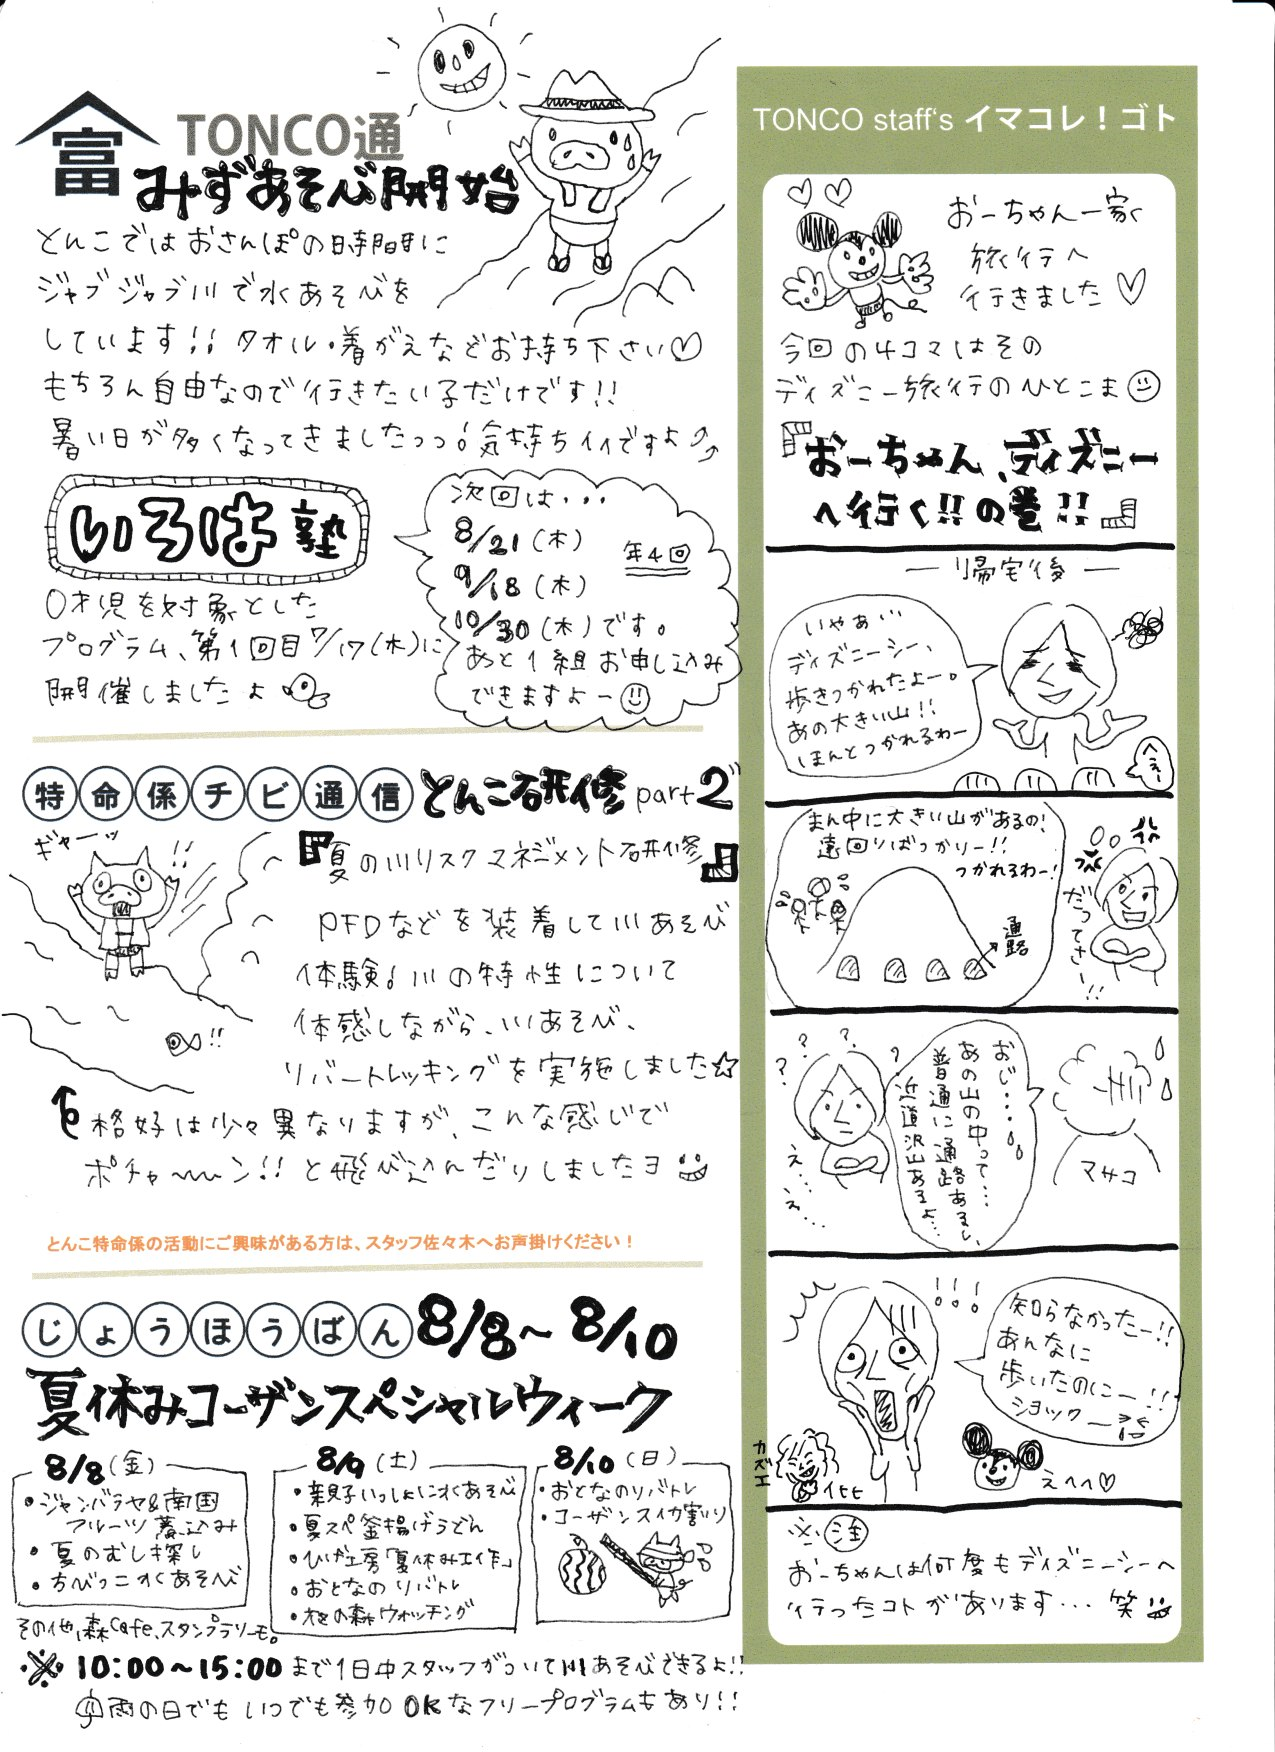 富
TONCO通
みずあそび開始
とんこではおさんぽの時間に
ジャブジャブ川で水あそびを
しています!! タオル・着がえなどお持ち下さい♡
もちろん自由なので行きたい子だけです!!
暑い日が多くなってきましたっっ!気持ちイイですよ♪
いろは塾
0才児を対象とした
プログラム、第1回目7/17(木)に
開催しましたよ
次回は・・・
8/21(木)
年4回
9/18(木)
10/30(木)です。
あと1組お申し込み
できますよー
特命係チビ通信 とんこ研修 part2
ギャーッ
!!
『夏の川リスクマネジメント研修』
PFDなどを装着して川あそび
体験!川の特性について
体感しながら、川あそび、
リバートレッキングを実施しました☆
!!
格好は少々異なりますが、こんな感じで
ポチャ〜〜ン!! と飛び込んだりしましたヨ
とんこ特命係の活動にご興味がある方は、スタッフ佐々木へお声掛けください！
じょうほうばん 8/8〜8/10
夏休みコーザンスペシャルウィーク
8/8(金)
・ジャンバラヤ&南国
フルーツ農込み
・夏のむし探し
・ちびっこ水あそび
8/9(土)
・親子いっしょに水あそび
・夏スペ釜揚げうどん
・ひげ工房「夏休み工作」
・おとなのリバトレ
・夜の森ウォッチング
8/10(日)
・おとなのリバトレ
・コーザンスイカ割り
その他、森Cafe、スタンプラリーも。
※10:00〜15:00まで1日中スタッフがついて川あそびできるよ!!
雨の日でもいつでも参加OKなフリープログラムもあり!!
TONCO staff's イマコレ！ゴト
おーちゃん一家
旅行へ
行きました♡
今回の4コマはその
ディズニー旅行のひとこま
『おーちゃん、ディズニー
へ行く!!の巻!!』
―帰宅後―
いやぁ〜
ディズニーシー、
歩きつかれたよー。
あの大きい山!!
ほんとつかれるわー
へぇ〜
まん中に大きい山があるの!
遠回りばっかりー!!
つかれるわー!
通路
だってさー!!
おじ・・・・
あの山の中って・・・
普通に通路あるし、
近道沢山あるよ・・・
???
?
え・・・
え・・・
マサコ
!!!
知らなかったー!!
あんなに
歩いたのにー!!
ショックー
カズエ
イヒヒ
えへへ♡
※注
おーちゃんは何度もディズニーシーへ
行ったコトがあります・・・笑